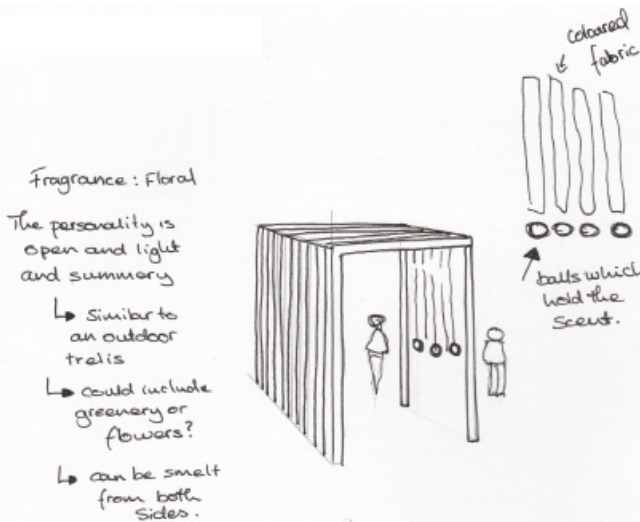 Fragrance : Floral
The personality is
open and light
and summery
↳ Similar to
an outdoor
trelis
↳ could include
greenery or
flowers?
↳ can be smelt
from both
sides.
coloured
fabric
balls which
hold the
scent.